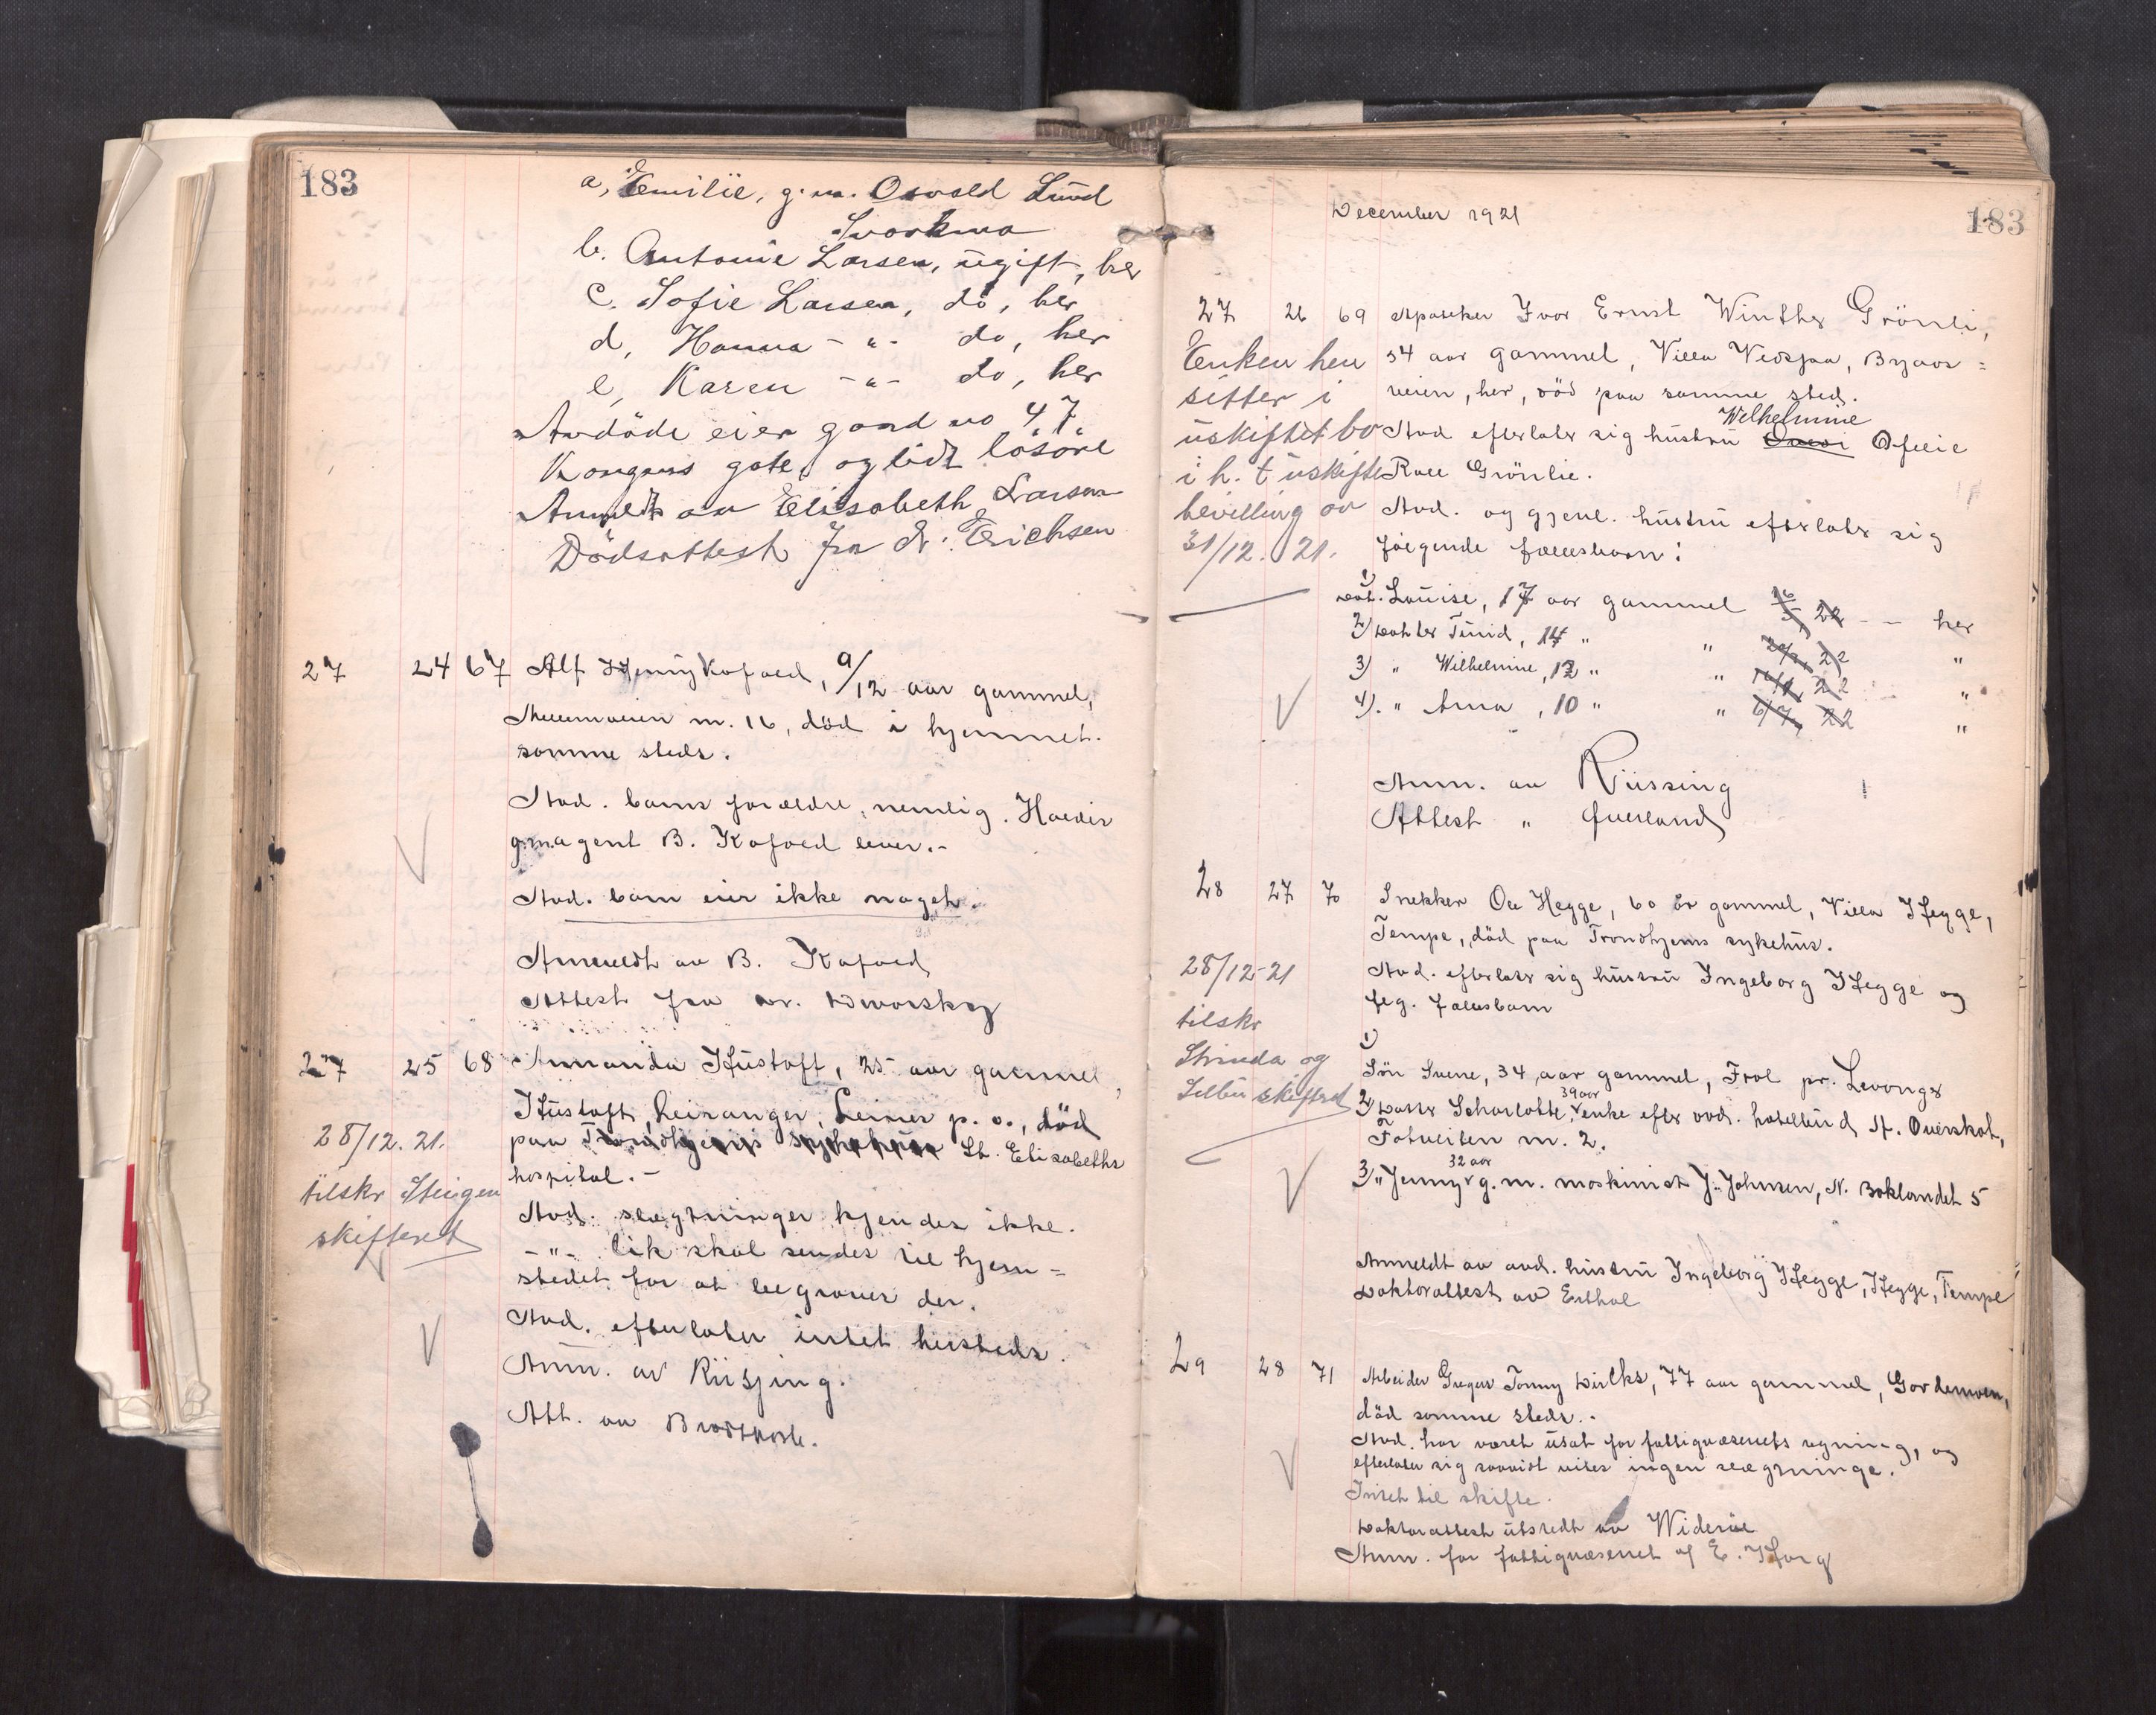 183
a, Emilie, g. m. Osvald Lund
Svorkmo
b. Antonie Larsen, ugift, her
c. Sofie Larsen, do, her
d, Hanna -"- do, her
e, Karen -"- do, her
Avdöde eier gaard no 47
Kongens gate, og lidt lösöre
Anmeldt av Elisabeth Larsen
Dödsattest fra dr. Erichsen
27 24 67 Alf Henny Kofoed, 9/12 aar gammel,
m. 16, död i hjemmet
samme steds.
Avd. barns forældre, nemlig
g.m. agent B. Kofoed lever.-
Avd. barn eier ikke noget.
Anmeldt av B. Kofoed
Attest fra dr. Dworsky
27 25 68 Amanda Hustoft, 25 aar gammel,
Hustoft, Leiranger, Leines p. o., död
paa Trondhjems sykehus St. Elisabeths
hospital.-
28/12. 21.
tilskr Steigen
skifteret
Avd. slegtninger kjendes ikke.
-"- lik skal sendes til hjem=
stedet for at begraves der.
Avd. efterlater intet hersteds.
Anm. av Riising.
Att. av
December 1921
183
27 26 69 Apoteker Ivar Ernst Winther Grönli,
54 aar gammel, Villa Vidspa, Byaas=
veien, her, död paa samme sted.
Wilhelmine
Avd efterlater sig hustru Ofelie
Roll Grönlie.
Enken hen
sitter i
uskiftet bo
i h. t uskifte
bevilling av
31/12. 21.
Avd. og gjenl. hustru efterlater sig
følgende fællesbarn:
1) dat. Louise, 17 aar gammel 22 -- her
2) datter Turid, 14 " " 22 "
3) " Wilhelmine, 12 " " 22 "
4). " Anna, 10 " " 6/7 22 "
Anm. av Riissing
Attest " Qverland
28 27 70 Snekker Ole Hegge, 60 år gammel, Villa Hegge,
Tempe, död paa Trondhjems sykehus.
Avd. efterlater sig hustru Ingeborg Hegge og
flg. fællesbarn
28/12-21
tilskr
Strinda og
Selbu skifteret
1)
Sön Sverre, 34 aar gammel, Frol pr. Levanger
39 aar
2) datter Scharlotte, enke efter avd. hotelbud A. Overskot,
Fotveiten m. 2.
32 aar
3) " Jenny g. m. maskinist J. Johnsen, N. Baklandet 5
Anmeldt av avd. hustru Ingeborg Hegge, Hegge, Tempe
Doktorattest av
29 28 71 Arbeider Gregor Tonny Dirks, 77 aar gammel, Gardemoen,
död samme steds.
Avd. har været utsat for fattigvæsenets regning, og
efterlater sig saavidt vites ingen slegtninge.
Intet til skifte.
Doktorattest utstedt av Wideröe
Anm. for fattigvæsenet af E.